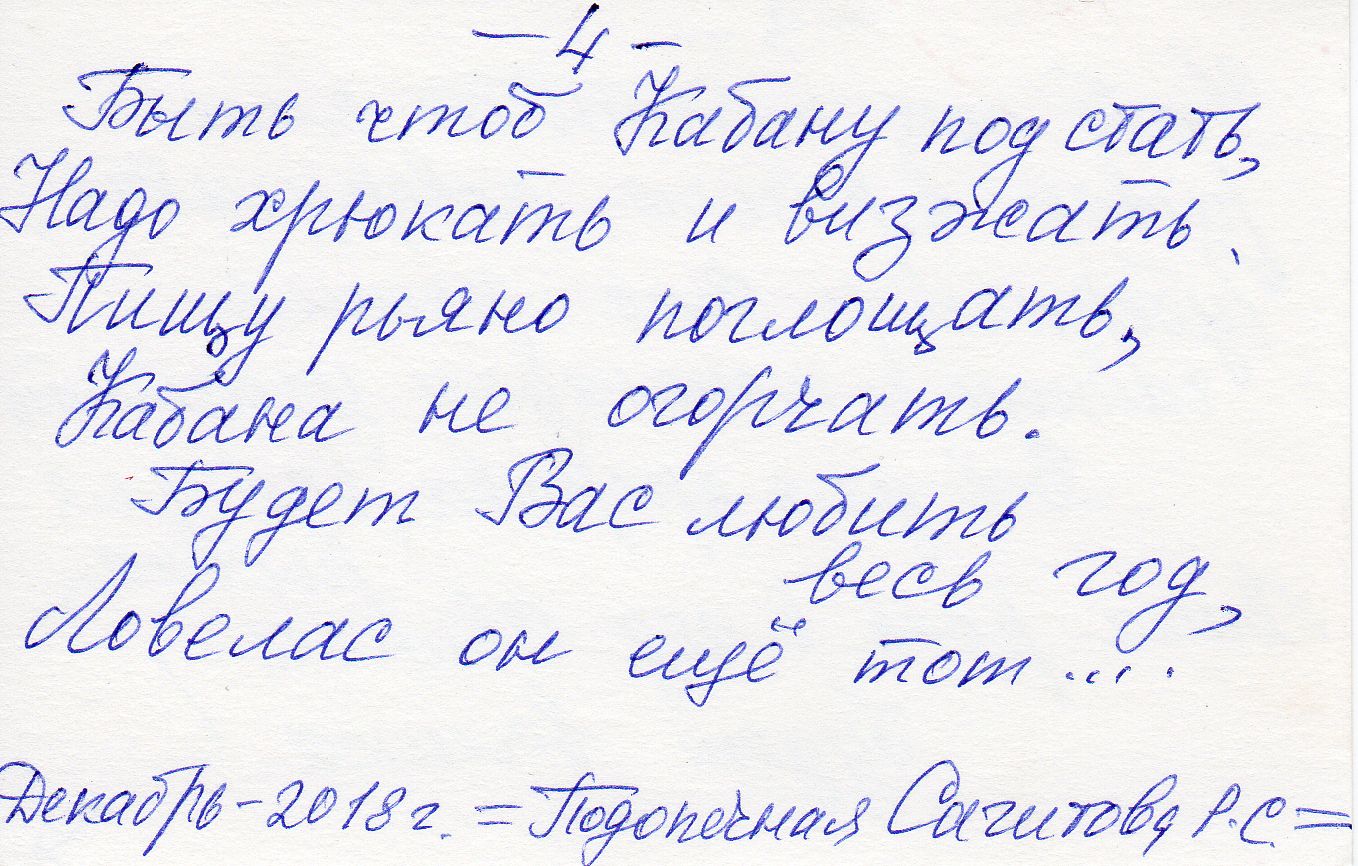 — 4 —
Быть чтоб Кабану под стать,
Надо хрюкать и визжать,
Пищу рьяно поглощать,
Кабана не огорчать.
Будет Вас любить
весь год,
Ловелас он ещё тот....
Декабрь-2018г. = Подопечная Сагитова Р.С. =